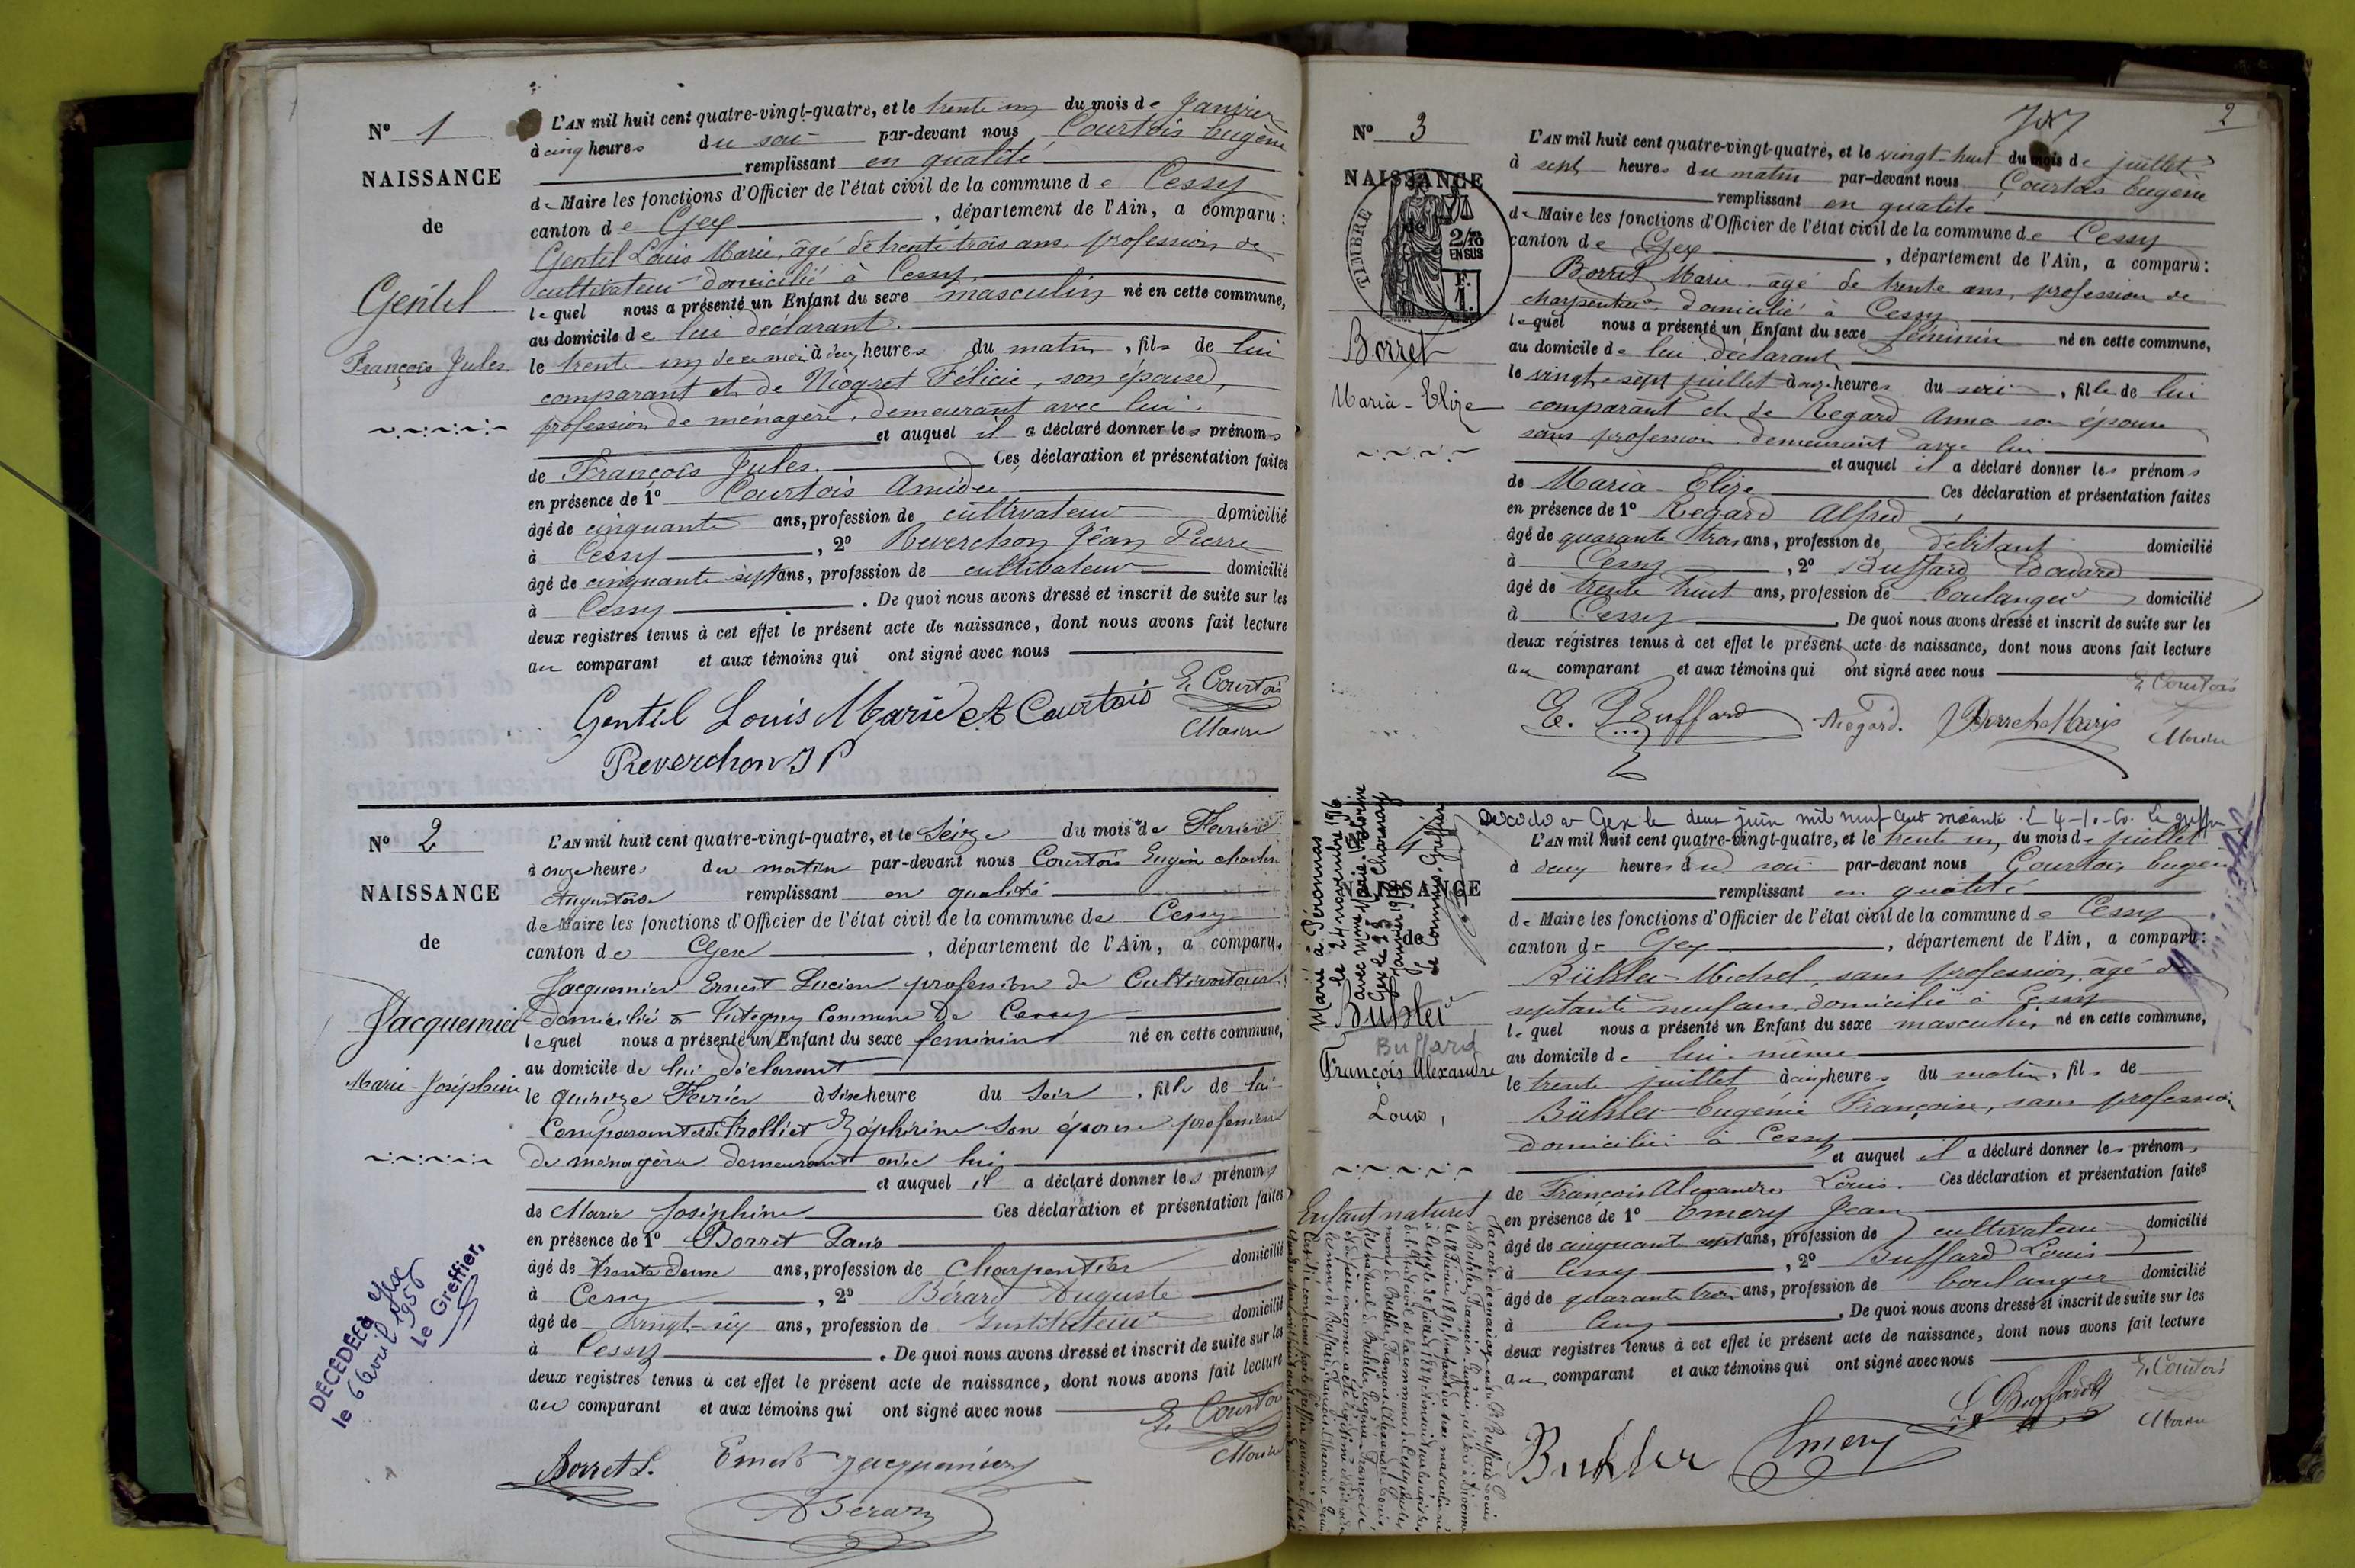 N° 1
NAISSANCE
de
Gentil
François Jules
L'AN mil huit cent quatre-vingt-quatre, et le trente un du mois de Janvier
à cinq heures du soir par-devant nous Courtois Eugène
remplissant en qualité
de Maire les fonctions d'Officier de l'état civil de la commune de Cessy
canton de Gex, département de l'Ain, a comparu:
Gentil Louis Marie, âgé de trente trois ans, profession de
cultivateur domicilié à Cessy,
lequel nous a présenté un Enfant du sexe masculin né en cette commune,
au domicile de lui déclarant.
le trente un de ce mois à deux heures du matin, fils de lui
comparant et de Niogret Félicie, son épouse,
profession de ménagère, demeurant avec lui.
et auquel il a déclaré donner les prénoms
de François Jules. Ces déclaration et présentation faites
en présence de 1° Courtois Amédée
âgé de cinquante ans, profession de cultivateur domicilié
à Cessy, 2° Reverchon Jean Pierre
âgé de cinquante sept ans, profession de cultivateur domicilié
à Cessy. De quoi nous avons dressé et inscrit de suite sur les
deux registres tenus à cet effet le présent acte de naissance, dont nous avons fait lecture
au comparant et aux témoins qui ont signé avec nous
E. Courtois
Gentil Louis Marie A Courtois
Maire
Reverchon J P
N° 2
NAISSANCE
de
Jacquemier
Marie-Joséphine
L'AN mil huit cent quatre-vingt-quatre, et le Seize du mois de Février
à onze heures du matin par-devant nous Courtois Eugène Charles
remplissant en qualité
de Maire les fonctions d'Officier de l'état civil de la commune de Cessy
canton de Gex, département de l'Ain, a comparu,
Jacquemier Ernest Lucien profession de Cultivateur
domicilié à Tutegny Commune de Cessy
lequel nous a présenté un Enfant du sexe feminin né en cette commune,
au domicile de lui déclarant
le quinze Février à six heure du Soir, fille de lui
Comparant et de Trolliet Zéphirine son épouse profession
de ménagère demeurant avec lui
et auquel il a déclaré donner les prénoms
de Marie Joséphine Ces déclaration et présentation faites
en présence de 1° Borret Louis
âgé de trente deux ans, profession de Charpentier domicilié
à Cessy, 2° Bérard Auguste
âgé de vingt-six ans, profession de Instituteur domicilié
à Cessy. De quoi nous avons dressé et inscrit de suite sur les
deux registres tenus à cet effet le présent acte de naissance, dont nous avons fait lecture
au comparant et aux témoins qui ont signé avec nous
E. Courtois
Maire
Borret L. Ernest Jacquemier
A Berard
DÉCÉDÉE à Gex
le 6 avril 1956
Le Greffier,
2
N° 3
NAISSANCE
de
TIMBRE
2/10
EN SUS
F.
1.
Borret
Maria-Elize
L'AN mil huit cent quatre-vingt-quatre, et le vingt-huit du mois de juillet
à sept heures du matin par-devant nous Courtois Eugène
remplissant en qualité
de Maire les fonctions d'Officier de l'état civil de la commune de Cessy
canton de Gex, département de l'Ain, a comparu:
Borret Marie, âgé de trente ans, profession de
charpentier, domicilié à Cessy
lequel nous a présenté un Enfant du sexe féminin né en cette commune,
au domicile de lui déclarant
le vingt-sept juillet à onze heures du soir, fille de lui
comparant et de Regard Anna son épouse
sans profession demeurant avec lui
et auquel il a déclaré donner les prénoms
de Maria-Elize Ces déclaration et présentation faites
en présence de 1° Regard Alfred,
âgé de quarante trois ans, profession de débitant domicilié
à Cessy, 2° Buffard Edouard
âgé de trente huit ans, profession de boulanger domicilié
à Cessy. De quoi nous avons dressé et inscrit de suite sur les
deux registres tenus à cet effet le présent acte de naissance, dont nous avons fait lecture
au comparant et aux témoins qui ont signé avec nous
E. Courtois
E. Buffard Regard. Borret Marie
Maire
Décédé à Gex le deux juin mil neuf cent soixante. Le 4-10-60. Le greffier
4
NAISSANCE
de
Marié à Péronnas
le 24 novembre 1916
Buhler
Buffard
François Alexandre
Louis,
Enfant naturel
L'AN mil huit cent quatre-vingt-quatre, et le trente un du mois de juillet
à deux heures du soir par-devant nous Courtois Eugène
remplissant en qualité
de Maire les fonctions d'Officier de l'état civil de la commune de Cessy
canton de Gex, département de l'Ain, a comparu:
Bühler Michel, sans profession, âgé de
septante neuf ans, domicilié à Cessy
lequel nous a présenté un Enfant du sexe masculin né en cette commune,
au domicile de lui-même
le trente juillet à cinq heures du matin, fils de
Bühler Eugénie Françoise, sans profession
domiciliée à Cessy
et auquel il a déclaré donner les prénoms
de François Alexandre Louis. Ces déclaration et présentation faites
en présence de 1° Emery Jean
âgé de cinquante sept ans, profession de cultivateur domicilié
à Cessy, 2° Buffard Louis
âgé de quarante trois ans, profession de boulanger domicilié
à Cessy. De quoi nous avons dressé et inscrit de suite sur les
deux registres tenus à cet effet le présent acte de naissance, dont nous avons fait lecture
au comparant et aux témoins qui ont signé avec nous
E. Courtois
L. Buffard
Maire
Buhler Emery